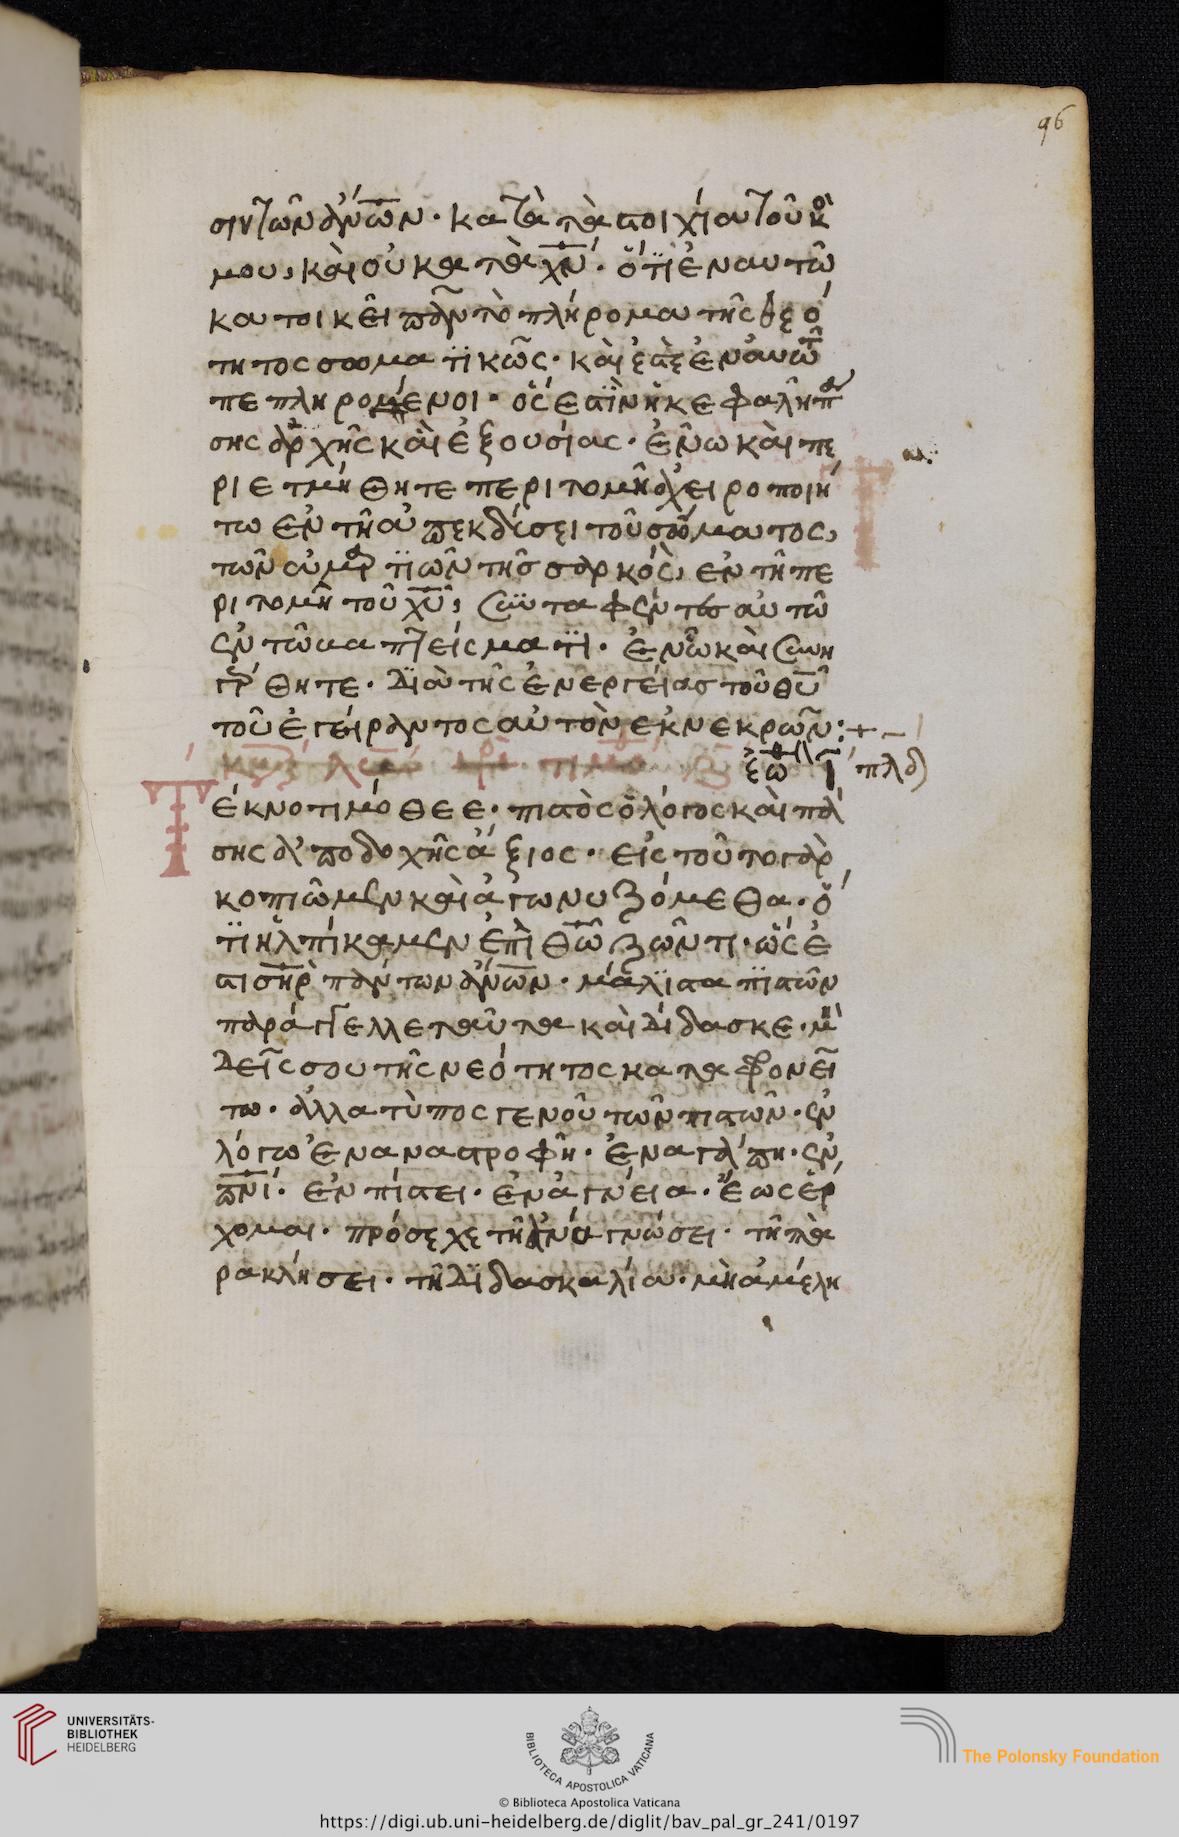 96
σιν τῶν ἀν̅ων· κατὰ τὰ στοιχία τοῦ κό
μου, καὶ οὐ κατὰ χν̅· ὅτι ἐν αυτῶ
κατοικεῖ πᾶν τὸ πλήρομα τῆς θεό
τητος σωματικῶς· καὶ ἐστὲ ἐν αυτῶ
πεπληρομένοι· ὅς ἐστιν ἡ κεφαλὴ πά
σης ἀρχῆς καὶ ἐξουσίας· ἐν ῶ καὶ πε
ριετμήθητε περιτομῆ ἀχειροποιή
τω ἐν τῆ ἀπεκδύσει τοῦ σώματος,
τῶν ἁμαρτιῶν τῆς σαρκός, ἐν τῆ πε
ριτομῆ τοῦ χυ̅, συνταφέντες αὐτῶ
ἐν τῶ βαπτίσματι· ἐν ῶ καὶ συνη
γέρθητε· διὰ τῆς ἐνεργείας τοῦ θυ̅
τοῦ ἐγείραντος αὐτὸν ἐκ νεκρῶν:+ –
Τέκνον τιμόθεε· πιστὸς ὁ λόγος καὶ πά
σης ἀποδοχῆς ἄξιος· εἰς τοῦτο γὰρ
κοπιῶμεν καὶ ἀγωνυζόμεθα· ὅ
τι ἠλπίκαμεν ἐπὶ θω̅ ζῶντι· ὅς ἐ
στι σηρ̅ πάντων ἀν̅ων· μάλιστα πιστῶν
παράγγελλε ταῦτα καὶ δίδασκε· μη
δεῖς σου τῆς νεότητος καταφρονεί
τω· ἀλλα τύπος γενοῦ τῶν πιστῶν· ἐν
λόγω ἐν αναστροφῆ· ἐν αγάπη· ἐν
πν̅ι· ἐν πίστει· ἐν ἁγνεία· ἕως ἔρ
χομαι· πρόσεχε τῆ ἀναγνώσει· τῆ πα
ρακλήσει· τῆ διδασκαλία· μὴ ἀμέλη
UNIVERSITÄTS-
BIBLIOTHEK
HEIDELBERG
BIBLIOTECA APOSTOLICA VATICANA
The Polonsky Foundation
© Biblioteca Apostolica Vaticana
https://digi.ub.uni-heidelberg.de/diglit/bav_pal_gr_241/0197